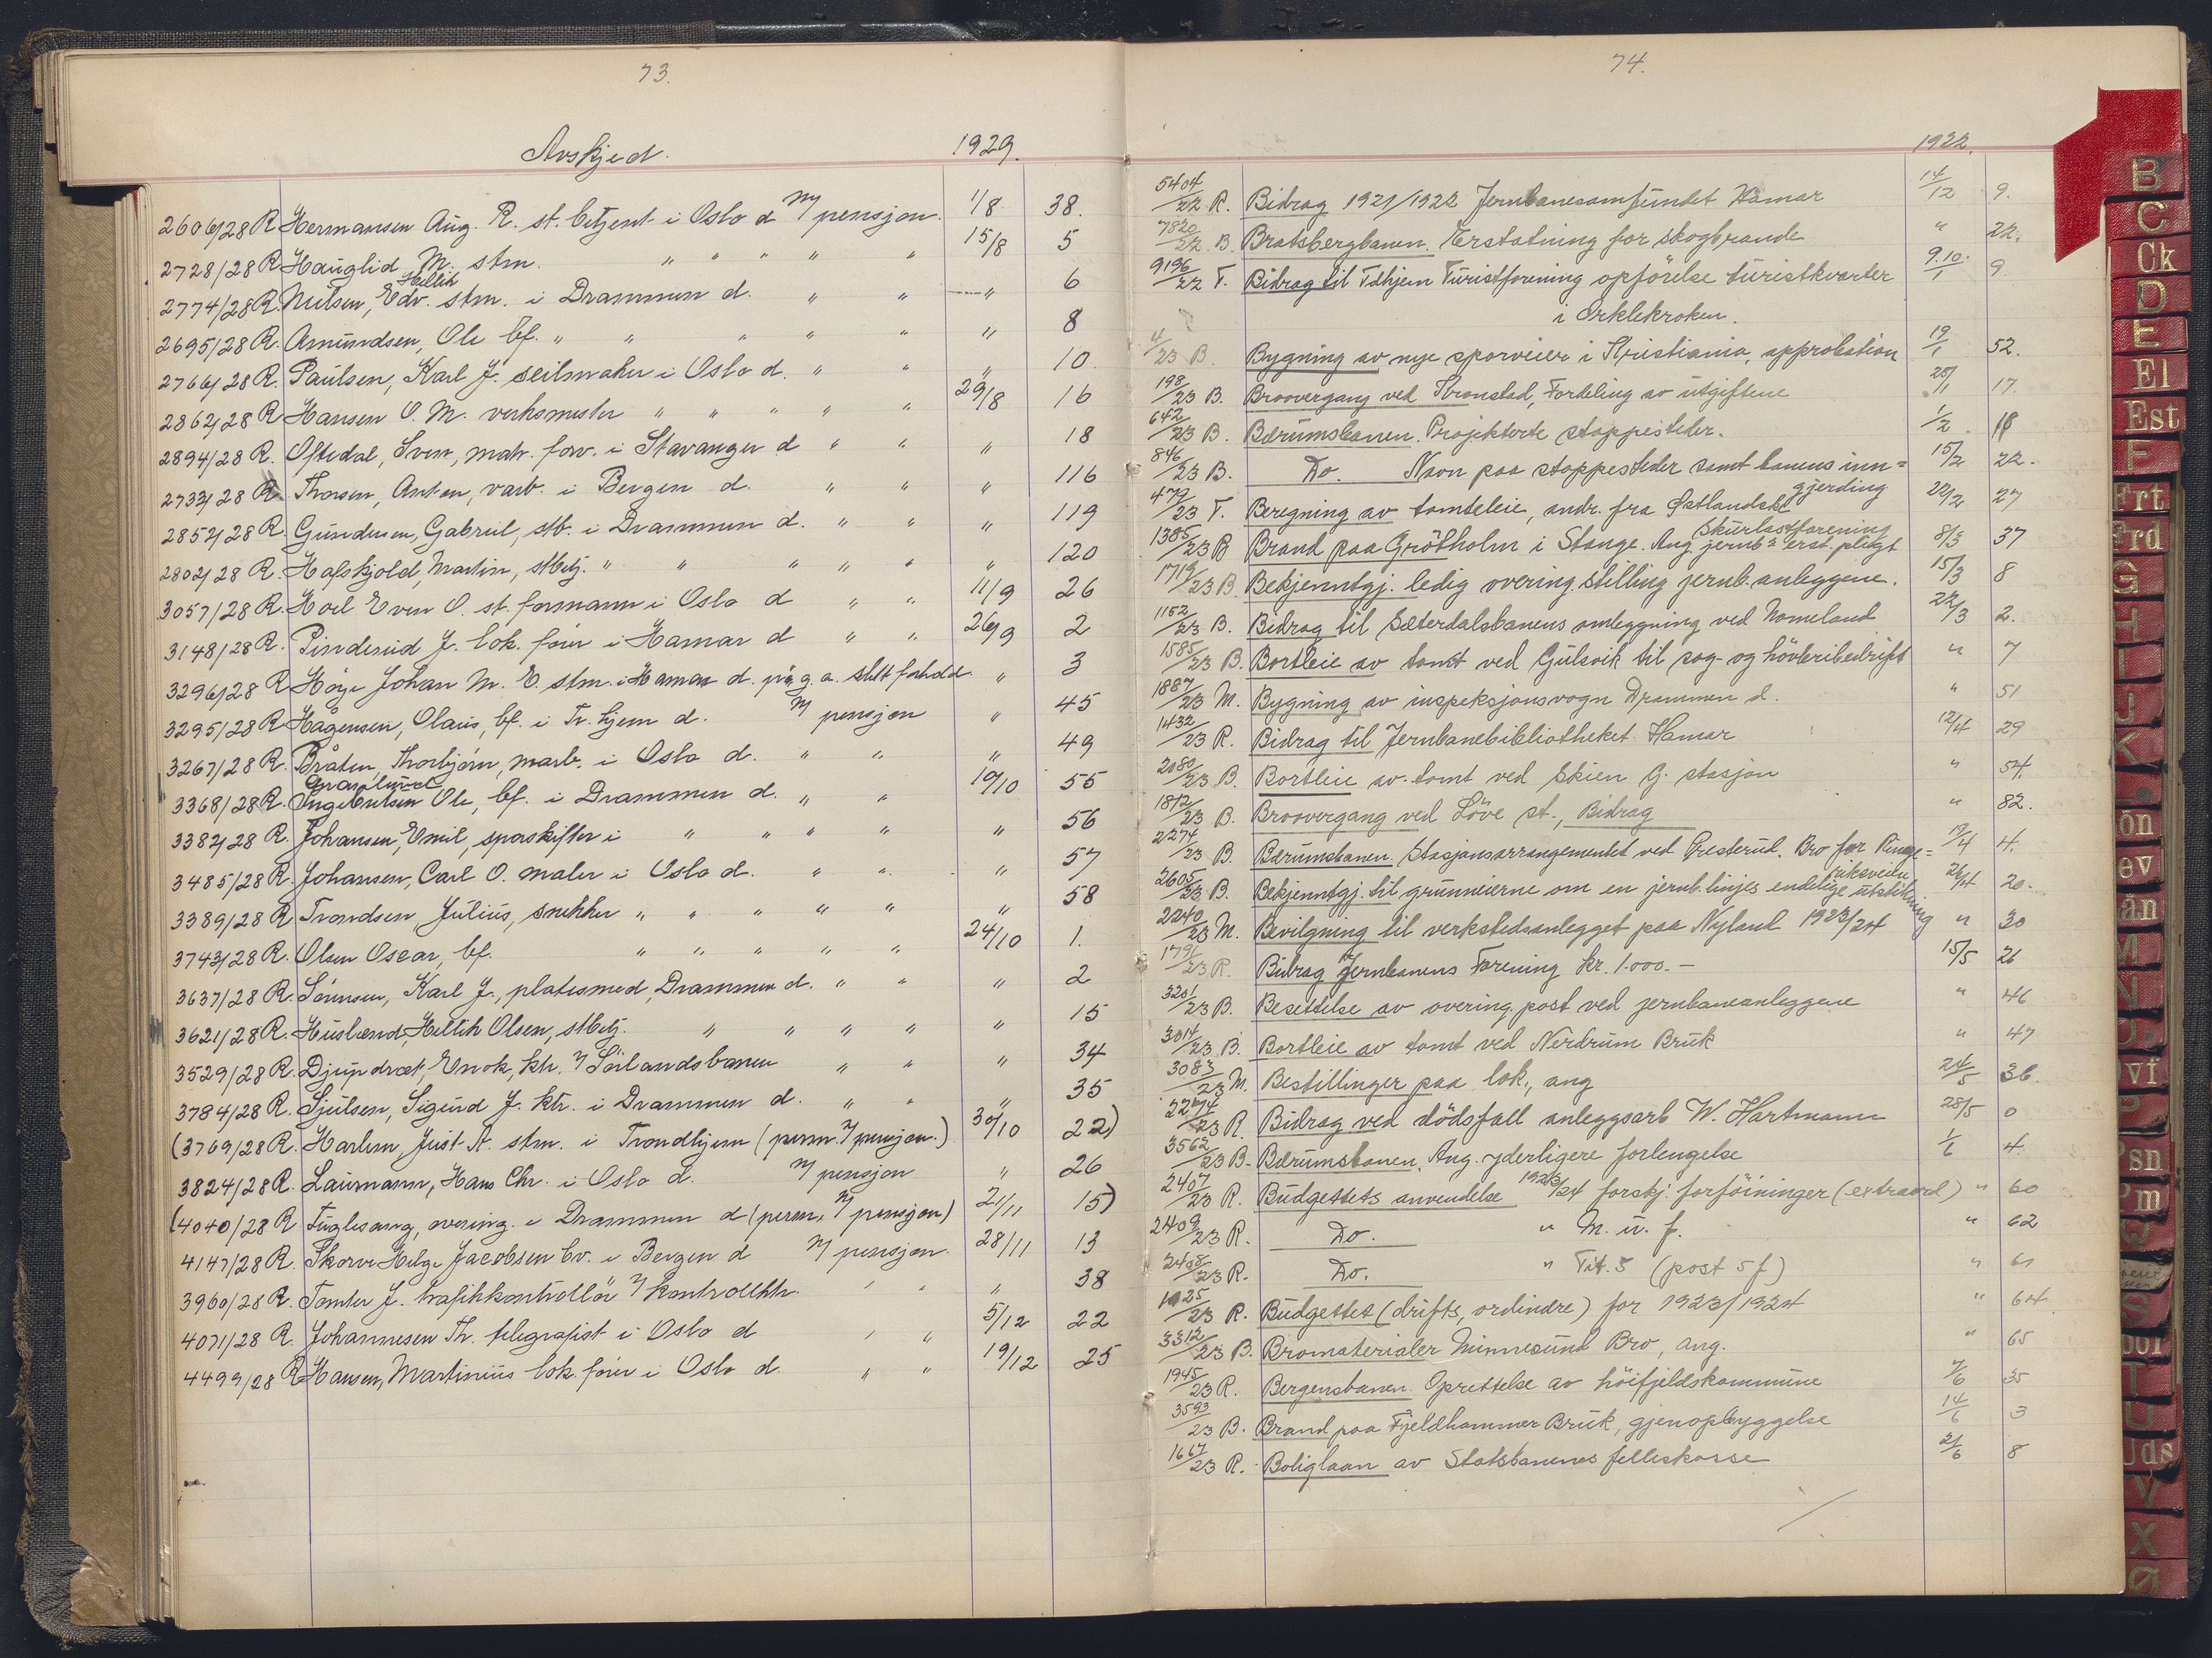 73.
Avskjed. 1929.
2606/28 R Hermansen Aug. R. st. betjent i Oslo d m/ pensjon. 1/8 38.
2728/28 R Hauglid, M. stm. " " " " " 15/8 5
2774/28 R. Nilsen, Hellik Edv. stm. i Drammen d. " " —" 6
2695/28 R. Amundsen, Ole bf. " " " " " " 8
2766/28 R. Paulsen, Karl J. seilmaker i Oslo d. " " " 10
2862/28 R Hansen O. M. verksmester " " " " " 29/8 16
2894/28 R. Oftedal, Sven, matr. forv. i Stavanger d " " " 18
2733/28 R. Thorsen, Anton, varb. i Bergen d. " " " 116
2852/28 R. Gundersen, Gabriel, stb. i Drammen d. " " " 119
2802/28 R. Hafskjold, Martin, stbtj. " " " " " " 120
3057/28 R. Hoel Even O. st. formann i Oslo d " " 11/9 26
3148/28 R. Pinderud J. lok. förer i Hamar d " " 26/9 2
3296/28 R Höije Johan M. E. stm. i Hamar d. på g. a. slett forhold. " 3
3295/28 R Hågensen, Olaus, bf. i Tr. hjem d. m/ pensjon " 45
3267/28 R. Bråten, Thorbjörn, marb. i Oslo d. " " " 49
3368/28 R. Ingebretsen Ole, bf. i Drammen d. " " 19/10 55
3382/28 R. Johansen, Emil, sporskifter i " " " " " 56
3485/28 R. Johansen, Carl O. maler i Oslo d. " " " 57
3389/28 R Trondsen, Julius, snekker " " " " " " 58
3743/28 R. Olsen Oscar, bf. " " " " " 24/10 1.
3637/28 R. Sörensen, Karl J., platesmed, Drammen d. " " " 2
3621/28 R. Husland, Hellik Olsen, stbtj. " " " " " 15
3529/28 R. Djupdræt, Enok, ktr. v/ Sörlandsbanen " " " 34
3784/28 R. Sjulsen, Sigurd J. ktr. i Drammen d. " " " 35
(3769/28 R. Harlem, Just A. stm. i Trondhjem (perm. m/ pensjon.) 30/10 22)
3824/28 R. Laumann, Hans Chr. i Oslo d. m/ pensjon " 26
(4040/28 R Fuglesang, overing. i Drammen d (perm. m/ pensjon) 21/11 15)
4147/28 R. Skorve Helge Jacobsen bv. i Bergen d m/ pensjon. 28/11 13
3960/28 R. Tomter J. trafikkontrollör v/ kontrollktr. " " " 38
4071/28 R. Johannesen Th. telegrafist i Oslo d " " 5/12 22
4499/28 R Hansen, Martinius lok. förer i Oslo d. " " 19/12 25
74.
1922.
5404/22 R. Bidrag 1921/1922 Jernbanesamfundet Hamar 14/12 9.
7820/22 B. Bratsbergbanen. Erstatning for skogbrande " 22.
9196/22 T. Bidrag til Tdhjem Turistforening opförelse turistkvarter 9.10./1 9
i Orklekroken.
4/23 B. Bygning av nye sporveier i Kristiania, approbation 19/1 52.
198/23 B. Broovergang ved Kronstad, Fordeling av utgiftene 25/1 17.
642/23 B. Bærumsbanen. Projekterte stoppesteder. 1/2 18
846/23 B. Do. Navn paa stoppesteder samt banens inn=
gjerding 15/2 22.
479/23 T. Beregning av tomteleie, andr. fra Østlandske
Skurlastforening 22/2 27
1385/23 B Brand paa Grötholm i Stange. Ang. jernb= erst. pligt 8/3 37
1719/23 B. Bekjenntgj. ledig overing. stilling jernb. anleggene. 15/3 8
1152/23 B. Bidrag til Sæterdalsbanens omleggning ved Nomeland 22/3 2.
1585/23 B. Bortleie av tomt ved Gulsvik til sag- og hövleribedrift " 7
1887/23 M. Bygning av inspeksjonsvogn Drammen d. " 51
1432/23 R. Bidrag til Jernbanebibliotheket Hamar 12/4 29
2080/23 B. Bortleie av tomt ved Skien G. stasjon " 54.
1812/23 B. Broovergang ved Löve st., Bidrag " 82.
2274/23 B. Bærumsbanen. Stasjonsarrangementet ved Gresterud. Bro for Ringe=
riksveien 19/4 4.
2605/23 B. Bekjenntgj. til grunneierne om en jernb. linjes endelige utstikning 26/4 20.
2240/23 M. Bevilgning til verkstedsanlegget paa Nyland 1923/24 " 30
1791/23 R. Bidrag Jernbanens Forening kr. 1.000.- 15/5 26
3201/23 B. Besettelse av overing. post ved jernbaneanleggene " 46
3014/23 B. Bortleie av tomt ved Nerdrum Bruk " 47
3083/23 M. Bestillinger paa lok., ang 24/5 36.
2274/23 R. Bidrag ved dödsfall anleggsarb W. Hartmann 28/5 0
3562/23 B. Bærumsbanen. Ang. yderligere forlengelse 1/6 4.
2407/23 R. Budgettets anvendelse 1923/24 forskj. forföininger (extraord) " 60
2409/23 R. Do. " M. u. f. " 62
2408/23 R. Do. " Tit. 3 (post 5 f) " 61
1925/23 R. Budgettet (drifts, ordindre) for 1923/1924 " 64
3312/23 B. Bromaterialer Minnesund Bro, ang. " 65
1945/23 R. Bergensbanen. Oprettelse av höifjeldskommune 7/6 35
3593/23 B. Brand paa Fjeldhammer Bruk, gjenopbyggelse 14/6 3
1667/23 R. Boliglaan av Statsbanenes felleskasse 21/6 8
B
C
Ck
D
E
El
Est
F
Frt
Frd
G
H
I
J
K
M
N
O
P
S
T
U
Uds
V
X
Ø